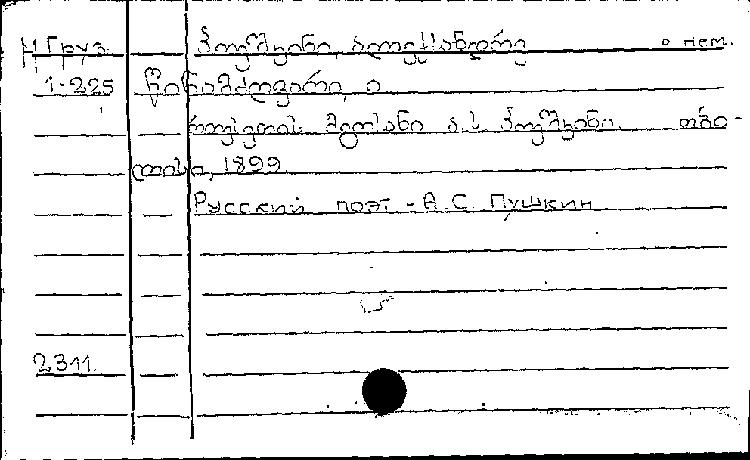 Н Груз. პოუშკინი, ალექსანდრე о нем.
1-225 წინამძღვარი, ი
რუსეთის მგოსანი ა.ს. პოუშკინი. თბი-
ლისი, 1899
Русский поэт - А. С. Пушкин
2311.